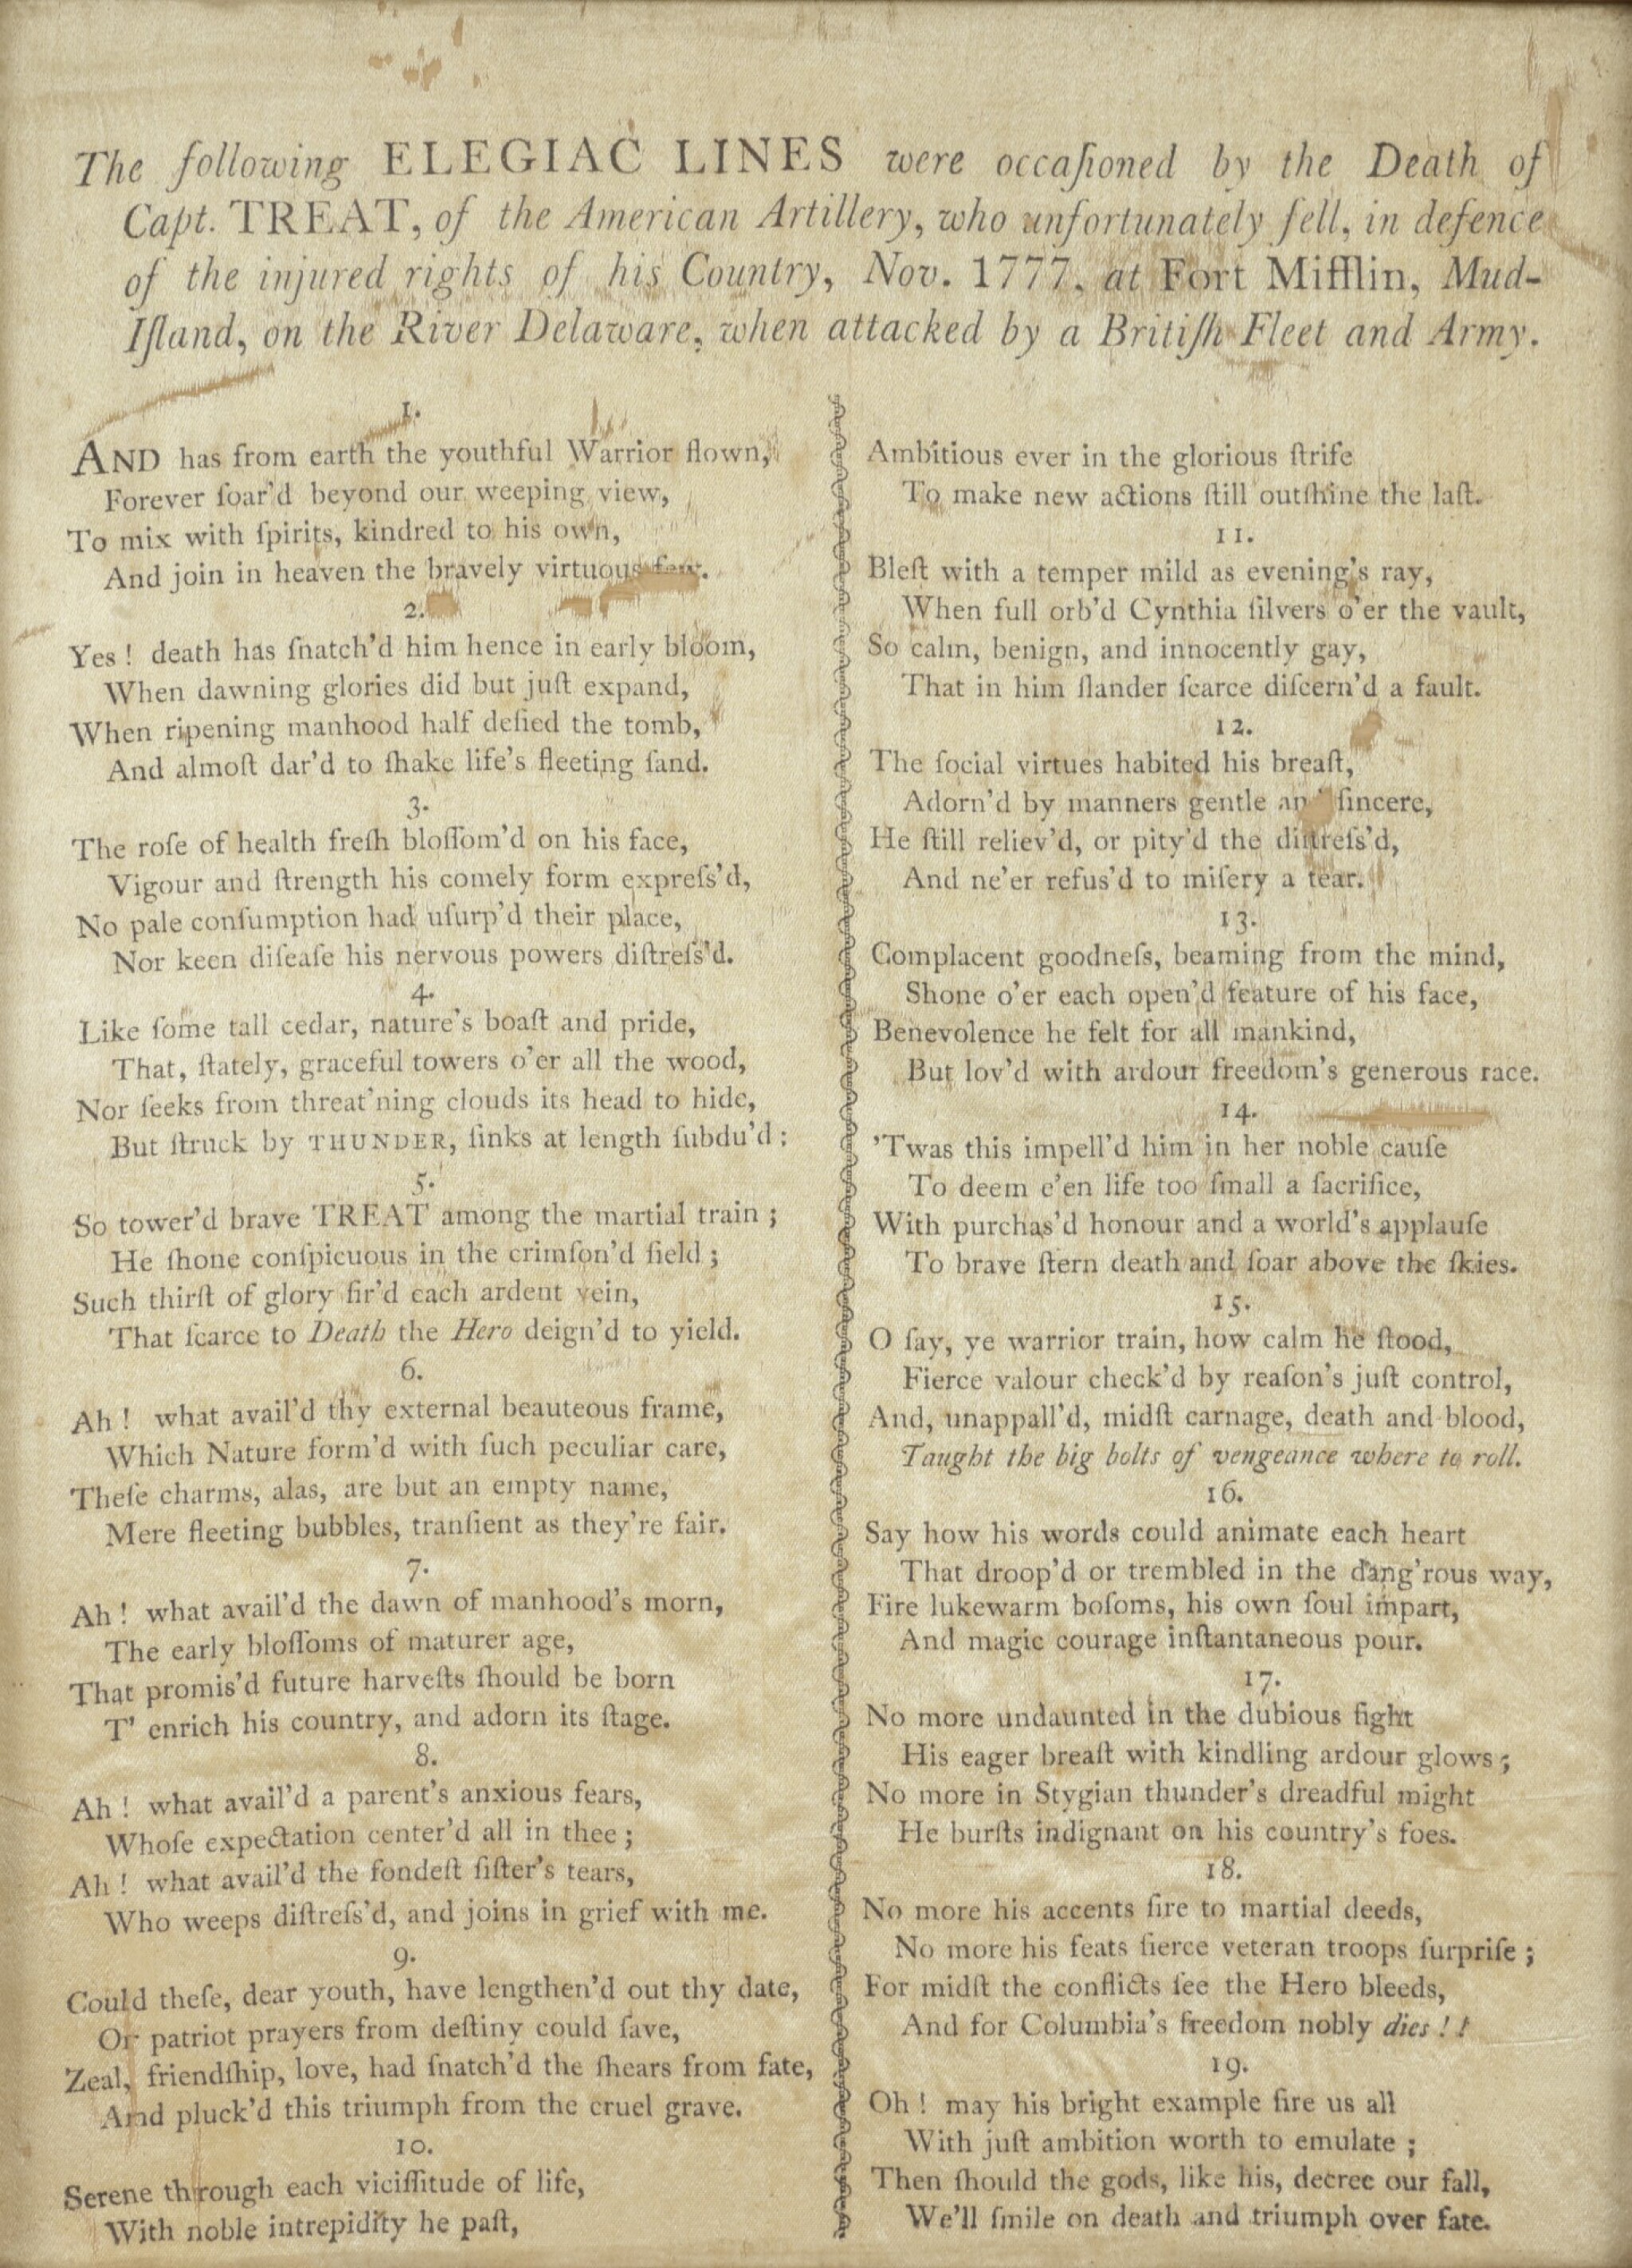 The following ELEGIAC LINES were occaſioned by the Death of
Capt. TREAT, of the American Artillery, who unfortunately fell, in defence
of the injured rights of his Country, Nov. 1777, at Fort Mifflin, Mud-
Iſland, on the River Delaware, when attacked by a Britiſh Fleet and Army.
1.
AND has from earth the youthful Warrior flown,
Forever ſoar'd beyond our weeping view,
To mix with ſpirits, kindred to his own,
And join in heaven the bravely virtuous few.
2.
Yes ! death has ſnatch'd him hence in early bloom,
When dawning glories did but juſt expand,
When ripening manhood half defied the tomb,
And almoſt dar'd to ſhake life's fleeting ſand.
3.
The roſe of health freſh bloſſom'd on his face,
Vigour and ſtrength his comely form expreſs'd,
No pale conſumption had uſurp'd their place,
Nor keen diſeaſe his nervous powers diſtreſs'd.
4.
Like ſome tall cedar, nature's boaſt and pride,
That, ſtately, graceful towers o'er all the wood,
Nor ſeeks from threat'ning clouds its head to hide,
But ſtruck by THUNDER, ſinks at length ſubdu'd ;
5.
So tower'd brave TREAT among the martial train ;
He ſhone conſpicuous in the crimſon'd field ;
Such thirſt of glory fir'd each ardent vein,
That ſcarce to Death the Hero deign'd to yield.
6.
Ah ! what avail'd thy external beauteous frame,
Which Nature form'd with ſuch peculiar care,
Theſe charms, alas, are but an empty name,
Mere fleeting bubbles, tranſient as they're fair.
7.
Ah ! what avail'd the dawn of manhood's morn,
The early bloſſoms of maturer age,
That promis'd future harveſts ſhould be born
T' enrich his country, and adorn its ſtage.
8.
Ah ! what avail'd a parent's anxious fears,
Whoſe expectation center'd all in thee ;
Ah ! what avail'd the fondeſt ſiſter's tears,
Who weeps diſtreſs'd, and joins in grief with me.
9.
Could theſe, dear youth, have lengthen'd out thy date,
Or patriot prayers from deſtiny could ſave,
Zeal, friendſhip, love, had ſnatch'd the ſhears from fate,
And pluck'd this triumph from the cruel grave.
10.
Serene through each viciſſitude of life,
With noble intrepidity he paſt,
Ambitious ever in the glorious ſtrife
To make new actions ſtill outſhine the laſt.
11.
Bleſt with a temper mild as evening's ray,
When full orb'd Cynthia ſilvers o'er the vault,
So calm, benign, and innocently gay,
That in him ſlander ſcarce diſcern'd a fault.
12.
The ſocial virtues habited his breaſt,
Adorn'd by manners gentle and ſincere,
He ſtill reliev'd, or pity'd the diſtreſs'd,
And ne'er refus'd to miſery a tear.
13.
Complacent goodneſs, beaming from the mind,
Shone o'er each open'd feature of his face,
Benevolence he felt for all mankind,
But lov'd with ardour freedom's generous race.
14.
'Twas this impell'd him in her noble cauſe
To deem e'en life too ſmall a ſacrifice,
With purchas'd honour and a world's applauſe
To brave ſtern death and ſoar above the ſkies.
15.
O ſay, ye warrior train, how calm he ſtood,
Fierce valour check'd by reaſon's juſt control,
And, unappall'd, midſt carnage, death and blood,
Taught the big bolts of vengeance where to roll.
16.
Say how his words could animate each heart
That droop'd or trembled in the dang'rous way,
Fire lukewarm boſoms, his own ſoul impart,
And magic courage inſtantaneous pour.
17.
No more undaunted in the dubious fight
His eager breaſt with kindling ardour glows ;
No more in Stygian thunder's dreadful might
He burſts indignant on his country's foes.
18.
No more his accents fire to martial deeds,
No more his feats fierce veteran troops ſurpriſe ;
For midſt the conflicts ſee the Hero bleeds,
And for Columbia's freedom nobly dies ! !
19.
Oh ! may his bright example fire us all
With juſt ambition worth to emulate ;
Then ſhould the gods, like his, decree our fall,
We'll ſmile on death and triumph over fate.